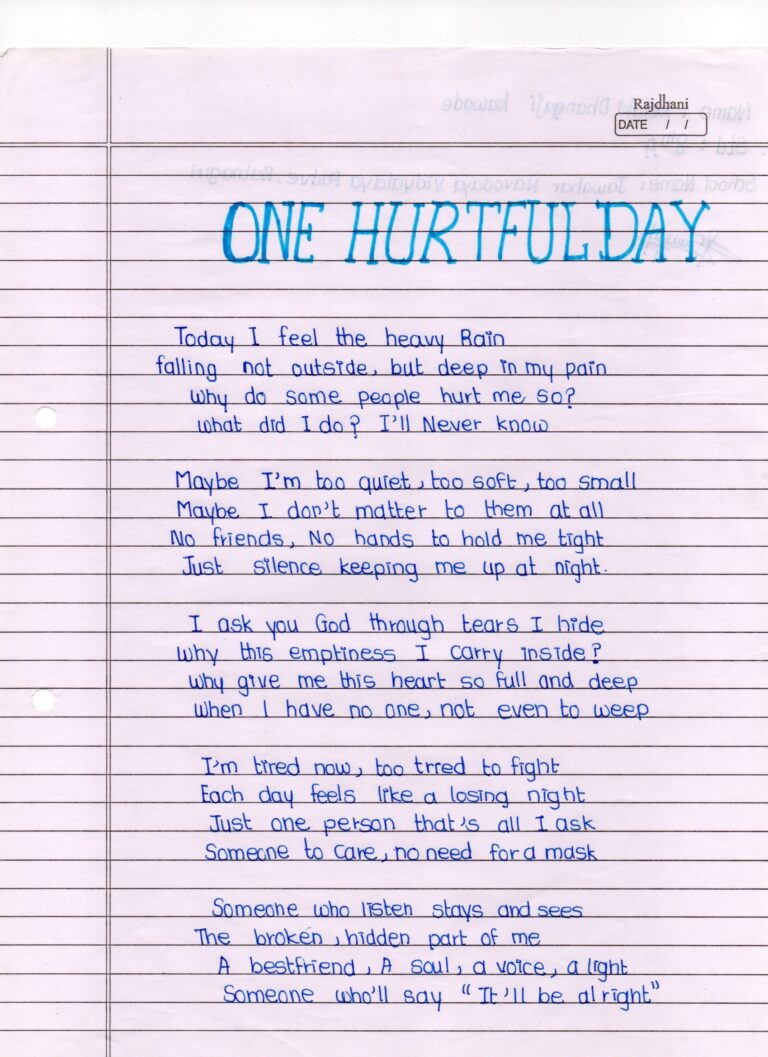 Rajdhani
DATE / /
ONE HURTFUL DAY
Today I feel the heavy Rain
falling not outside, but deep in my pain
Why do some people hurt me so?
what did I do? I'll Never know
Maybe I'm too quiet, too soft, too small
Maybe I don't matter to them at all
No friends, No hands to hold me tight
Just silence keeping me up at night.
I ask you God through tears I hide
Why this emptiness I carry inside?
Why give me this heart so full and deep
When I have no one, not even to weep
I'm tired now, too tired to fight
Each day feels like a losing night
Just one person that's all I ask
Someone to care, no need for a mask
Someone who listen stays and sees
The broken, hidden part of me
A bestfriend, A soul, a voice, a light
Someone who'll say "It'll be alright"